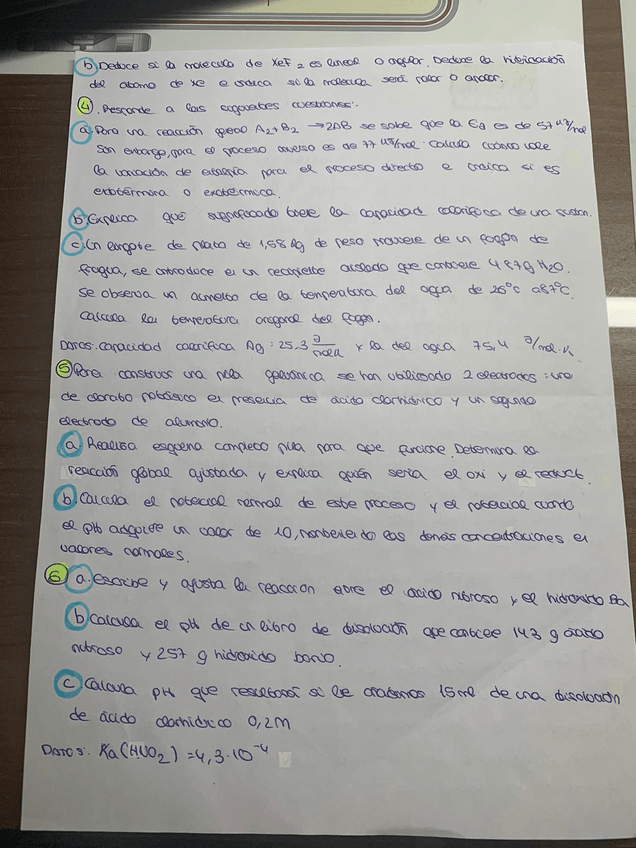 b) Deduce si la molécula de XeF2 es lineal o angular. Deduce la hibridación
del átomo de Xe e indica si la molécula será polar o apolar.
4. Responde a las siguientes cuestiones:
a. Para una reacción general A2+B2 → 2AB se sabe que la Ea es de 57 kJ/mol
Sin embargo, para el proceso inverso es de 77 kJ/mol. Calcula cuánto vale
la variación de energía para el proceso directo e indica si es
endotérmica o exotérmica.
b. Explica qué significado tiene la capacidad calorífica de una sustan.
c. Un lingote de plata de 1,58 kg de peso proviene de un fogón de
fragua, se introduce en un recipiente aislado que contiene 487g H2O.
Se observa un aumento de la temperatura del agua de 20°C a 87°C.
Calcula la temperatura original del fogón.
Datos: Capacidad calorífica Ag: 25,3 J/mol·K y la del agua 75,4 J/mol·K.
5 Para construir una pila galvánica se han utilizado 2 electrodos: uno
de clorato potásico en presencia de ácido clorhídrico y un segundo
electrodo de aluminio.
a. Realiza esquema completo pila para que funcione. Determina la
reacción global ajustada y explica quién sería el oxi y el reduct.
b. Calcula el potencial normal de este proceso y el potencial cuando
el pH adquiere un valor de 10, manteniendo las demás concentraciones en
valores normales.
6 a. Escribe y ajusta la reacción entre el ácido nitroso y el hidróxido Ba
b) Calcula el pH de un litro de disolución que contiene 143 g ácido
nitroso y 257 g hidróxido bario.
c Calcula pH que resultará si le añadimos 15ml de una disolución
de ácido clorhídrico 0,2M
Datos: Ka(HNO2) = 4,3·10-4